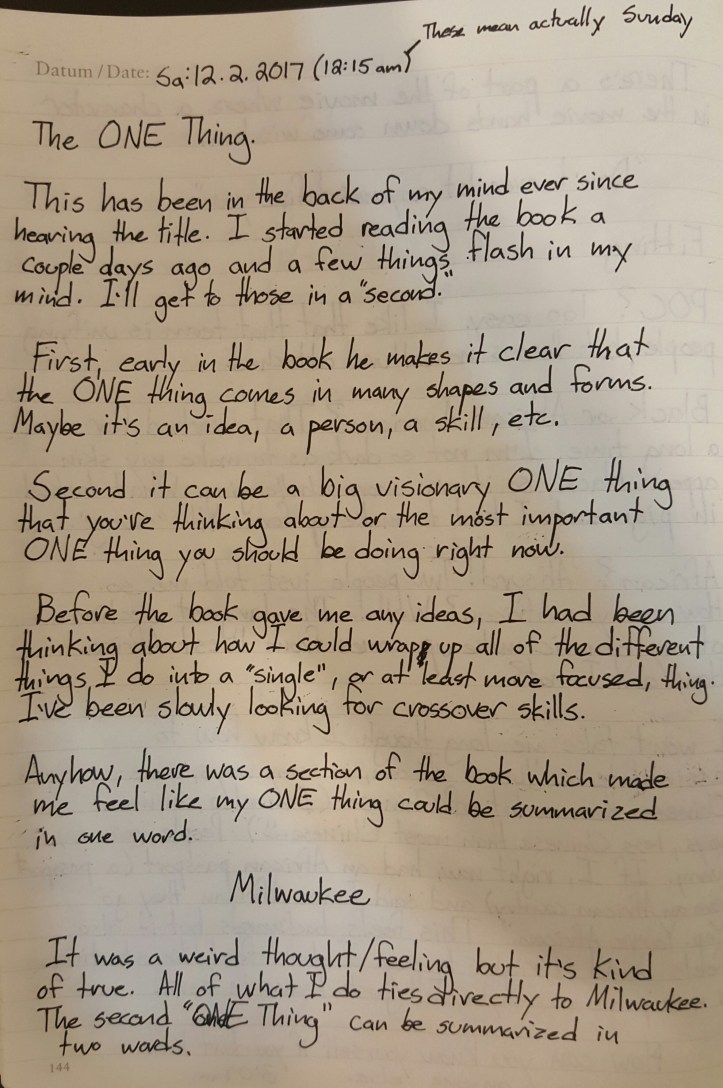 These mean actually Sunday
Datum / Date: Sa:12.2.2017 (12:15am)
The ONE Thing.
This has been in the back of my mind ever since
hearing the title. I started reading the book a
couple days ago and a few things flash in my
mind. I'll get to those in a "second."
First, early in the book he makes it clear that
the ONE thing comes in many shapes and forms.
Maybe it's an idea, a person, a skill, etc.
Second it can be a big visionary ONE thing
that you're thinking about or the most important
ONE thing you should be doing right now.
Before the book gave me any ideas, I had been
thinking about how I could wrap up all of the different
things I do into a "single", or at least more focused, thing.
I've been slowly looking for crossover skills.
Anyhow, there was a section of the book which made
me feel like my ONE thing could be summarized
in one word.
Milwaukee
It was a weird thought/feeling but it's kind
of true. All of what I do ties directly to Milwaukee.
The second "ONE Thing" can be summarized in
two words.
144